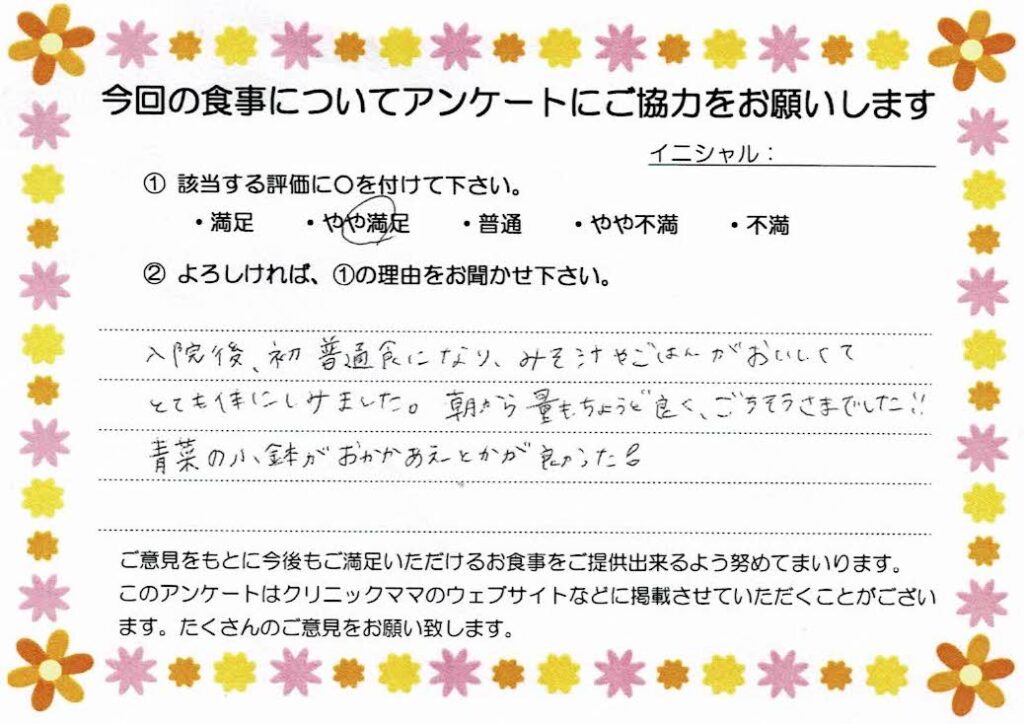 今回の食事についてアンケートにご協力をお願いします
イニシャル：
① 該当する評価に〇を付けて下さい。
・満足 ・やや満足 ・普通 ・やや不満 ・不満
② よろしければ、①の理由をお聞かせ下さい。
入院後、初 普通食になり、みそ汁やごはんがおいしくて
とても体にしみました。朝から量もちょうど良く、ごちそうさまでした!!
青菜の小鉢がおかかあえとかが良かった
ご意見をもとに今後もご満足いただけるお食事をご提供出来るよう努めてまいります。
このアンケートはクリニックママのウェブサイトなどに掲載させていただくことがござい
ます。たくさんのご意見をお願い致します。